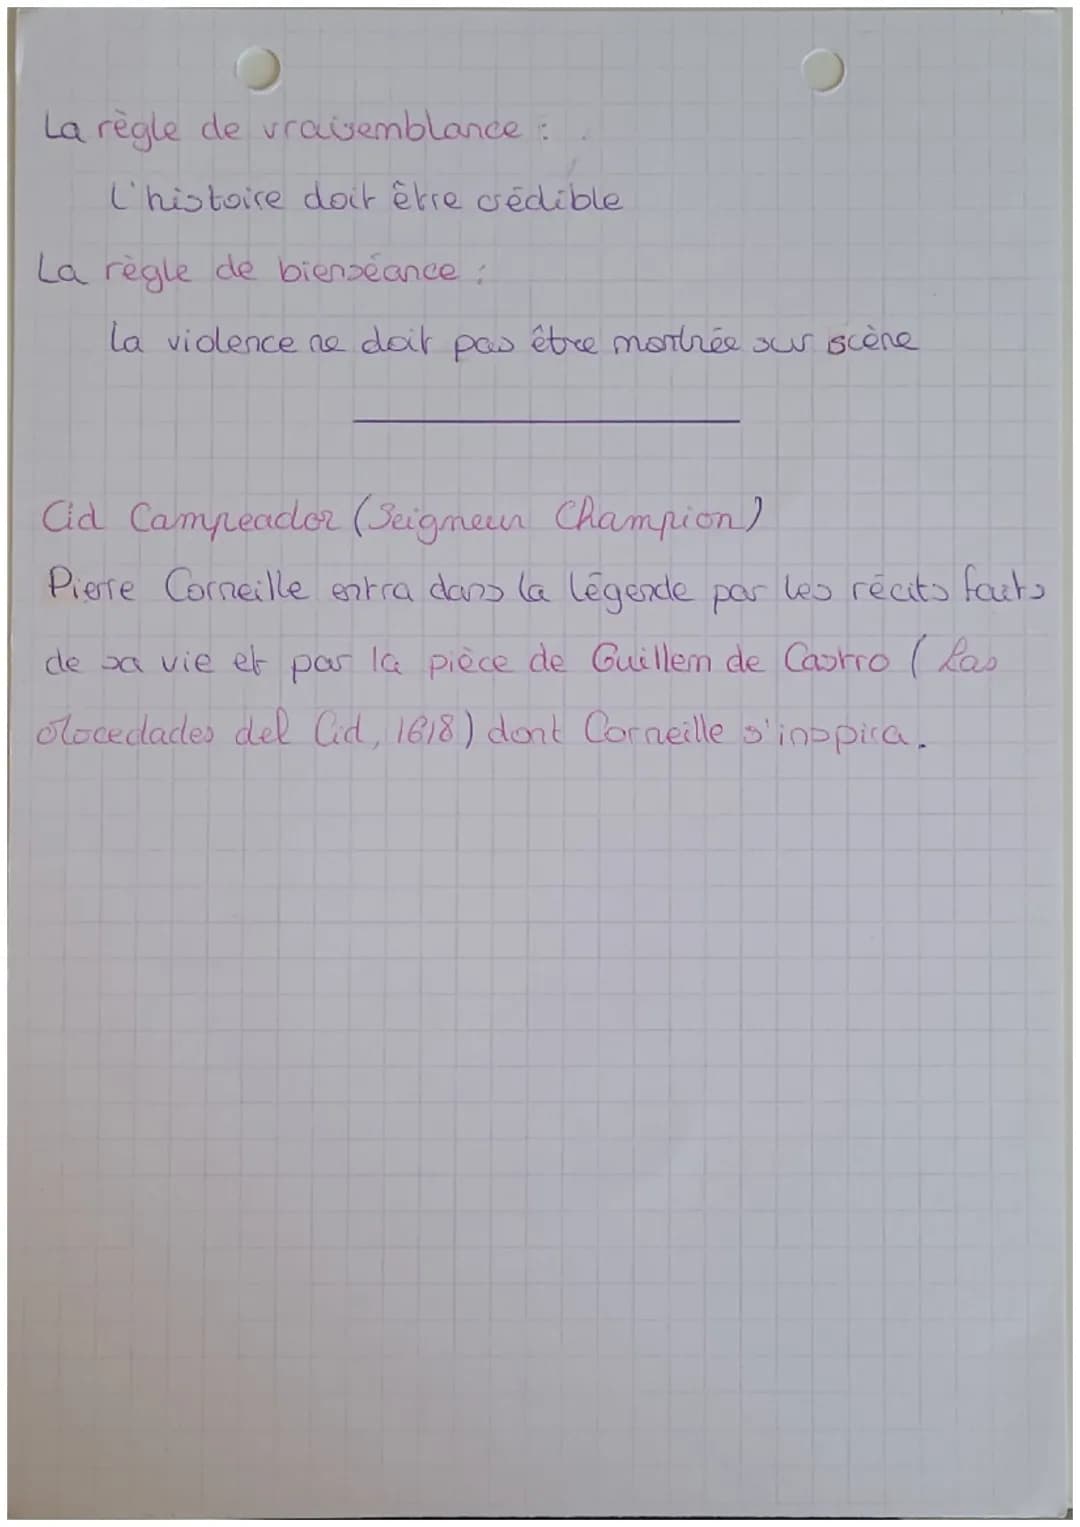 La règle de vraisemblance :
L'histoire doit être crédible
La règle de bienséance :
la violence ne doit pas être montrée sur scène
Cid Campeador (Seigneur Champion)
Pierre Corneille entra dans la légende par les récits faits
de sa vie et par la pièce de Guillem de Castro (Las
Mocedades del Cid, 1618) dont Corneille s'inspira.